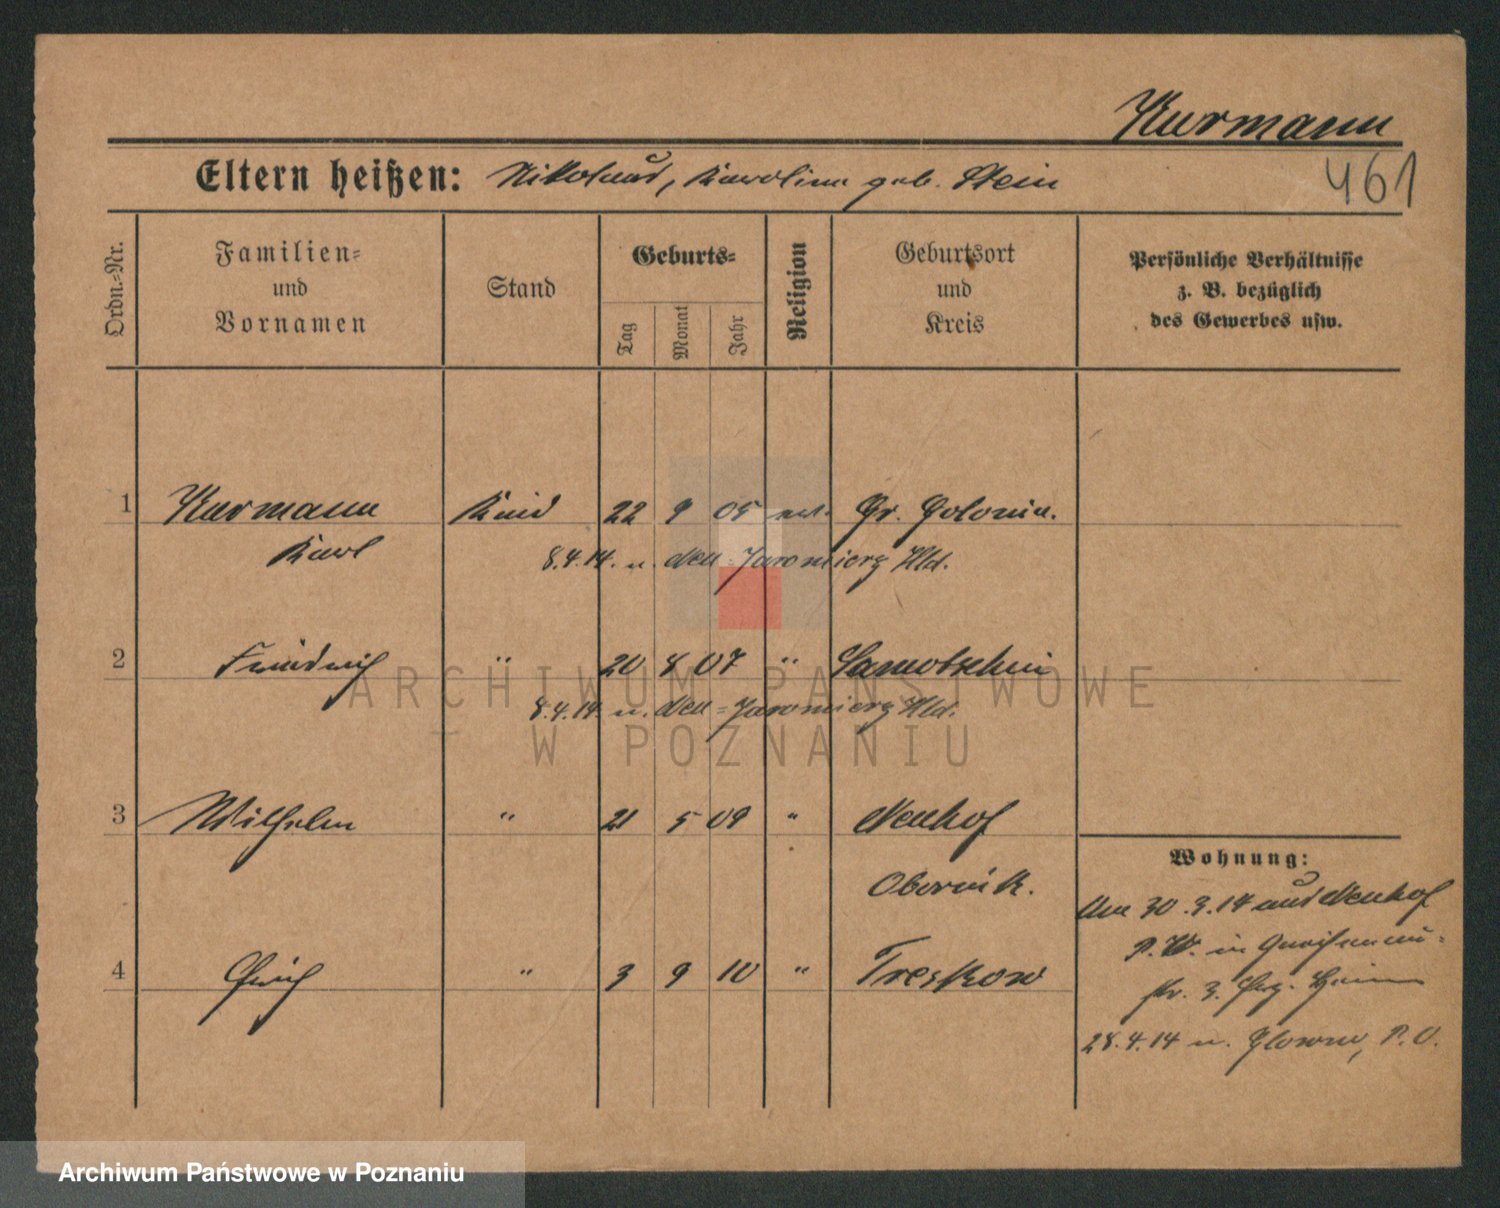 Kurmann
Eltern heißen: Nikolaus, Karolina geb. Stein
461
Ordn.-Nr.
Familien-
und
Vornamen
Stand
Geburts-
Tag
Monat
Jahr
Religion
Geburtsort
und
Kreis
Persönliche Verhältnisse
z. B. bezüglich
des Gewerbes usw.
1 Kurmann Kind 22 9 05 Gr. Golonin.
Karl 8.4.14. n. Neu-Jaromierz Hld.
2 Friedrich " 20 8 07 " Samotschin
8.4.14. n. Neu-Jaromierz Hld.
3 Wilhelm " 21 5 09 " Neuhof
Obornik.
4 Erich " 3 9 10 " Treskow
Wohnung:
Am 30.3.14 aus Neuhof
P. W. in
str. 3.
28.4.14 n. Glowno, P. O.
ARCHIWUM PAŃSTWOWE
W POZNANIU
Archiwum Państwowe w Poznaniu